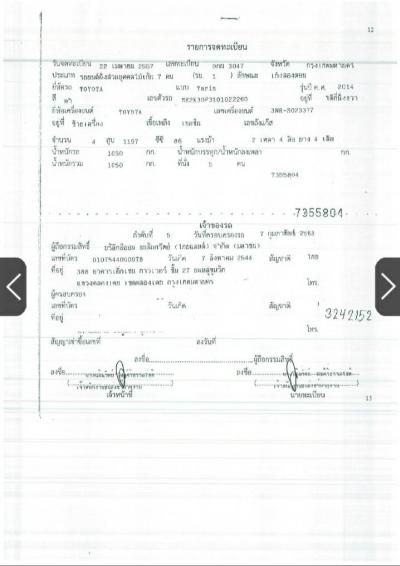 12
รายการจดทะเบียน
วันจดทะเบียน 22 เมษายน 2557 เลขทะเบียน 3047 จังหวัด กรุงเทพมหานคร
ประเภท รถยนต์นั่งส่วนบุคคลไม่เกิน 7 คน (รย. 1 ) ลักษณะ เก๋งสองตอน
ยี่ห้อรถ TOYOTA แบบ Yaris รุ่นปี ค.ศ. 2014
สี ดำ เลขตัวรถ อยู่ที่
ยี่ห้อเครื่องยนต์ TOYOTA เลขเครื่องยนต์ 3NR-3023377
อยู่ที่ เชื้อเพลิง เบนซิน เลขถังแก๊ส
จำนวน 4 สูบ 1197 ซีซี 86 แรงม้า 2 เพลา 4 ล้อ ยาง 4 เส้น
น้ำหนักรถ 1050 กก. น้ำหนักบรรทุก/น้ำหนักลงเพลา กก.
น้ำหนักรวม 1050 กก. ที่นั่ง 5 คน
7355804
7355804
เจ้าของรถ
ลำดับที่ 5 วันที่ครอบครองรถ 7 กุมภาพันธ์ 2563
ผู้ถือกรรมสิทธิ์ (มหาชน)
เลขที่บัตร 0107544000078 วันเกิด 7 สิงหาคม 2544 สัญชาติ ไทย
ที่อยู่ 388 ชั้น 27 ถนนสุขุมวิท โทร.
แขวงคลองเตย เขตคลองเตย กรุงเทพมหานคร
ผู้ครอบครอง
เลขที่บัตร วันเกิด สัญชาติ
3242152
ที่อยู่
โทร.
สัญญาเช่าซื้อเลขที่ ลงวันที่
ลงชื่อ ผู้ถือกรรมสิทธิ์
ลงชื่อ ลงชื่อ
เจ้าหน้าที่ นายทะเบียน
13